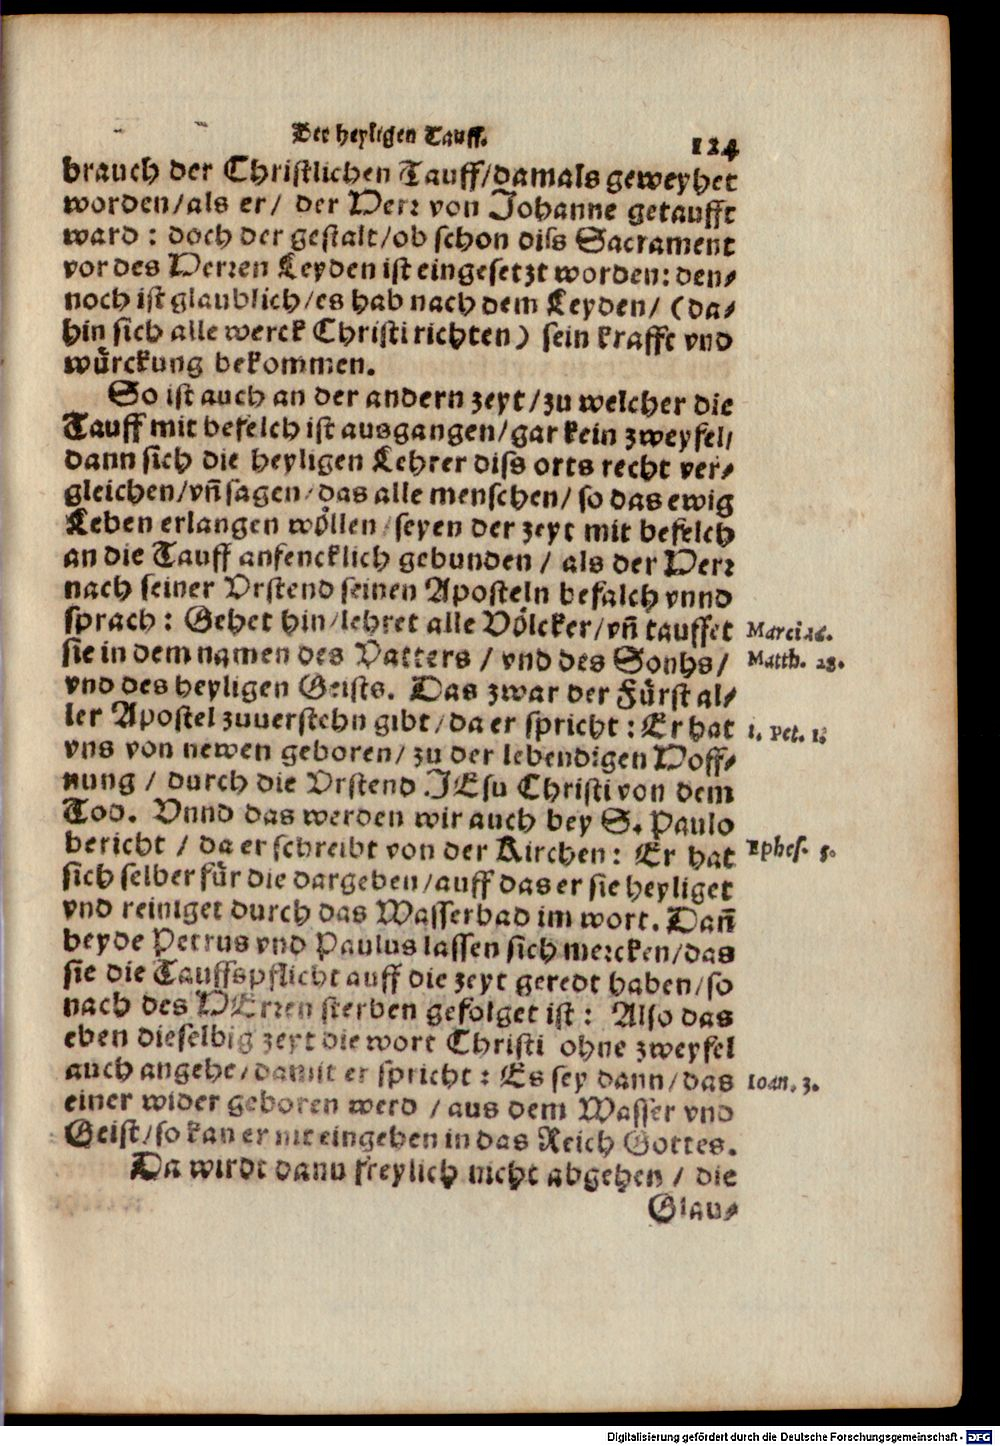 Der heyligen Tauff.
124
brauch der Christlichen Tauff/damals geweyhet
worden/als er/ der Herr von Johanne getaufft
ward: doch der gestalt/ob schon diss Sacrament
vor des Herren Leyden ist eingesetzt worden: den-
noch ist glaublich/es hab nach dem Leyden/ (da-
hin sich alle werck Christi richten) sein krafft vnd
würckung bekommen.
So ist auch an der andern zeyt/zu welcher die
Tauff mit befelch ist ausgangen/gar kein zweyfel/
dann sich die heyligen Lehrer diss orts recht ver-
gleichen/vñ sagen/das alle menschen/ so das ewig
Leben erlangen wöllen/seyen der zeyt mit befelch
an die Tauff anfencklich gebunden / als der Herr
nach seiner Vrstend seinen Aposteln befalch vnnd
sprach: Gehet hin/lehret alle Völcker/vñ tauffet
Marci 16.
sie in dem namen des Vatters / vnd des Sonhs/
Matth. 28.
vnd des heyligen Geists. Das zwar der Fürst al-
ler Apostel zuuerstehn gibt/da er spricht: Er hat
1. Pet. 1.
vns von newen geboren/ zu der lebendigen Hoff-
nung / durch die Vrstend JEsu Christi von dem
Tod. Vnnd das werden wir auch bey S. Paulo
bericht / da er schreibt von der Kirchen: Er hat
Ephes. 5.
sich selber für die dargeben/auff das er sie heyliget
vnd reiniget durch das Wasserbad im wort. Dañ
beyde Petrus vnd Paulus lassen sich mercken/das
sie die Tauffspflicht auff die zeyt geredt haben/so
nach des HErren sterben gefolget ist: Also das
eben dieselbig zeyt die wort Christi ohne zweyfel
auch angehe/damit er spricht: Es sey dann/das
Ioan. 3.
einer wider geboren werd / aus dem Wasser vnd
Geist/so kan er nit eingehen in das Reich Gottes.
Da wirdt dann freylich nicht abgehen / die
Glau-
Digitalisierung gefördert durch die Deutsche Forschungsgemeinschaft - DFG